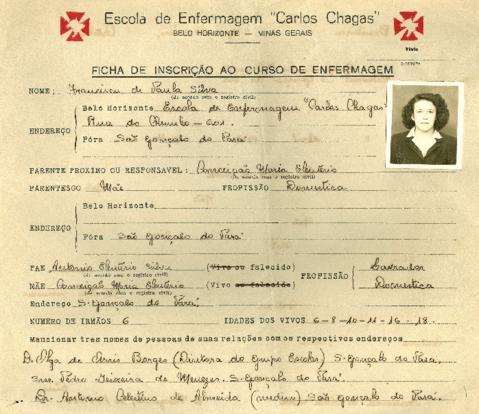 Escola de Enfermagem "Carlos Chagas"
BELO HORIZONTE — MINAS GERAIS
FICHA DE INSCRIÇÃO AO CURSO DE ENFERMAGEM
NOME: Francisca de Paula Silva
(de acordo com o registro civil)
Belo Horizonte Escola de Enfermagem "Carlos Chagas"
Rua do Chumbo - 601
ENDEREÇO
Fóra São Gonçalo do Pará
PARENTE PROXIMO OU RESPONSAVEL: Conceição Maria Eleutério
(de acordo com o registro civil)
PARENTESCO Mãe PROFISSÃO Domestica
Belo Horizonte
ENDEREÇO
Fóra São Gonçalo do Pará
PAE Antonio Eleutério Silva (Vivo ou falecido) Lavrador
(de acordo com o registro civil) PROFISSÃO
MÃE Conceição Maria Eleutério (Vivo ou falecido) Domestica
(de acordo com o registro civil)
Endereço S. Gonçalo do Pará
NUMERO DE IRMÃOS 6 IDADES DOS VIVOS 6-8-10-11-16-18.
Mencionar tres nomes de pessoas de suas relações com os respectivos endereços
D. Olga de Borges (Diretora do Grupo Escolar) S. Gonçalo do Pará.
Snr. Pedro Teixeira de Menezes. S. Gonçalo do Pará.
Dr. Antonio Celestino de Almeida (medico) São Gonçalo do Pará.